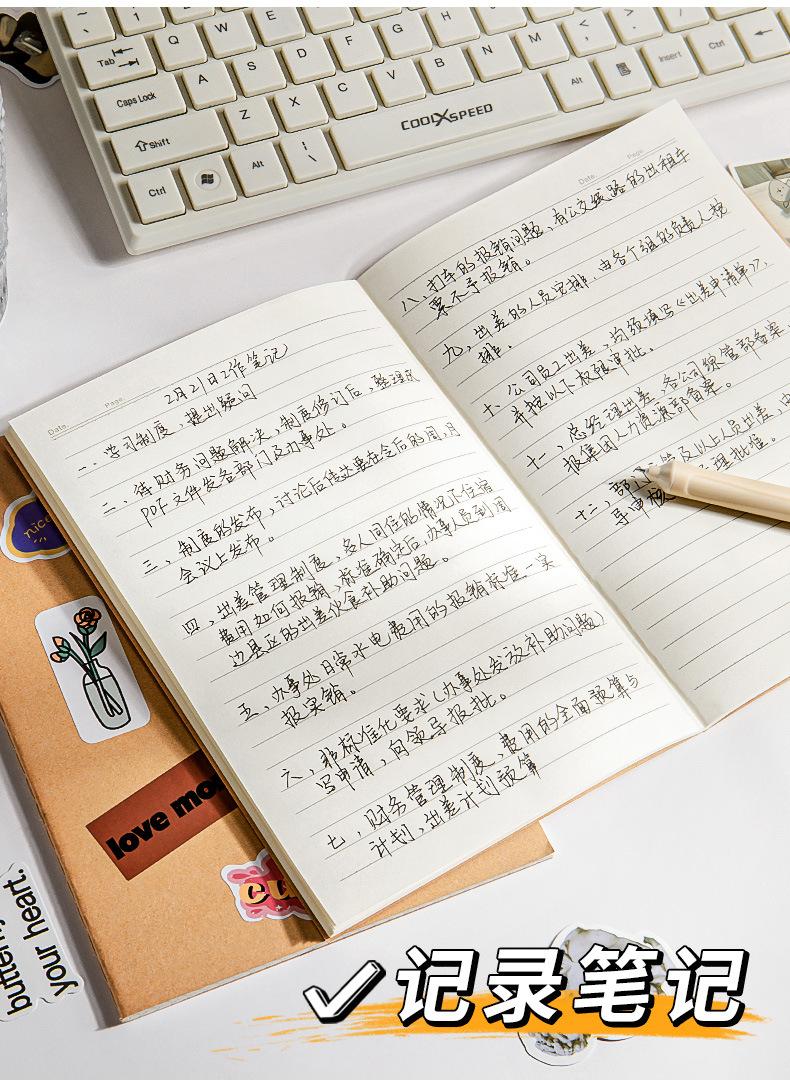 Q W E R T Y
Tab
A S D F G H
Caps Lock
Z X C V B N M
Shift
Alt Insert Ctrl
COOLXSPEED
Ctrl Alt
Date. Page.
2月21日工作笔记
一、学习制度,提出疑问
二、待财务问题解决,制度修订后,整理成
PDF文件发各部门及办事处。
三、制度的发布,讨论后传达要在今后的周,月
会议上发布。
四、出差管理制度,多人同住的情况下住宿
费用如何报销,标准确定后,办事人员到周
边县区的出差伙食补助问题。
五、办事处日常水电费用的报销标准一实
报实销。
六、非标准化要求(办事处发放补助问题)
写申请,向领导报批。
七、财务管理制度,费用的全面预算与
计划,出差计划预算
Date. Page.
八、打车的报销问题,有公交线路的出租车
票不予报销。
九、出差的人员安排,由各个组的负责人安
排。
十、公司员工出差,均须填写《出差申请单》,
并按以下权限审批。
十一、总经理出差,各公司综管部备案,
报集团人力资源部备案。
十二、部 管及以上人员出差,由
导审核 理批准。
nice
love mo
cu
butterfly
your heart.
记录笔记